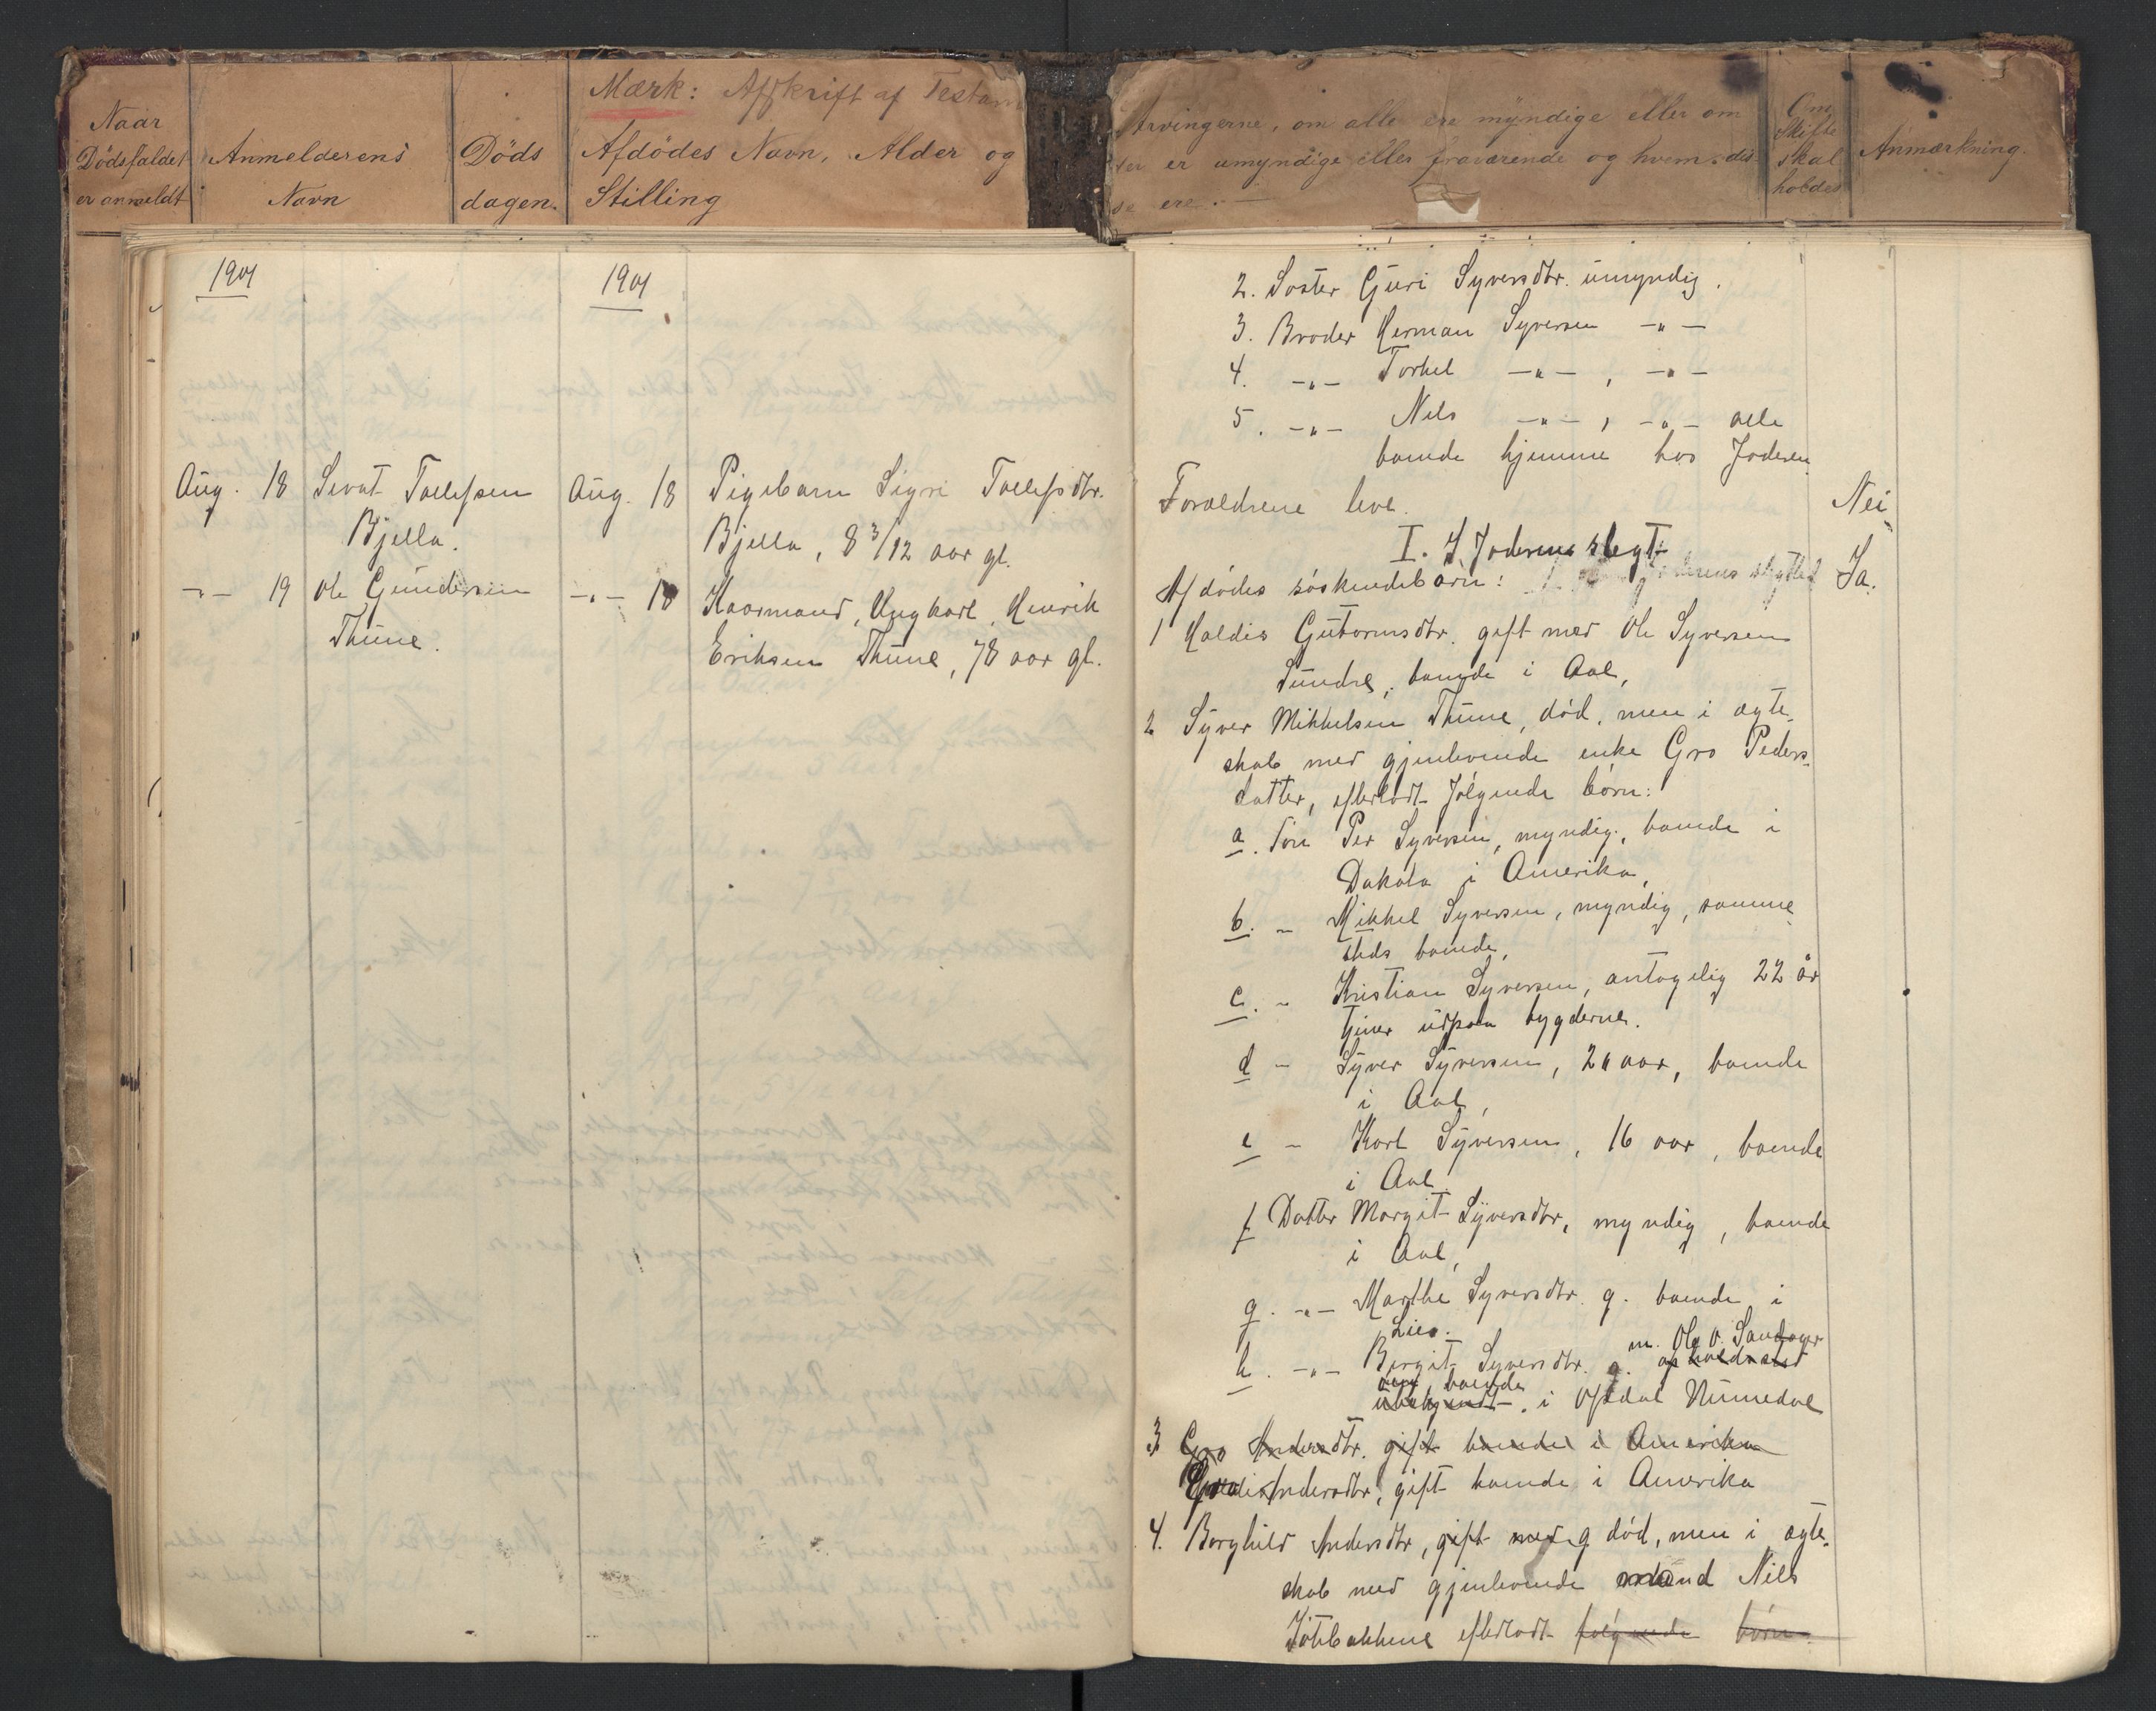 Mærk: Afskrift af Testam
Naar
Dödsfaldet
er anmeldt
Anmelderens
Navn
Döds
dagen.
Afdödes Navn, Alder og
Stilling
Arvingerne, om alle ere myndige eller om
der er umyndige eller fraværende og hvem dis-
se ere. —
Om
Skifte
skal
holdes
Anmærkning.
1901
1901
Aug. 18 Sevat Tollefsen
Bjella.
Aug. 18 Pigebarn Sigri Tollefsdtr.
Bjella, 8 3/12 aar gl.
-„- 19 Ole Gundersen
Thune.
-„- 18 Kaarmand, Ungkarl, Henrik
Eriksen Thune, 78 aar gl.
2. Søster Guri Syversdtr. umyndig.
3. Broder Herman Syversen -„-
4. -„- Torkel -„-, -„-
5. -„- Nils -„-, -„- alle
boende hjemme hos faderen
Forældrene leve. Nei
I. I faderens slegt
Afdödes söskendebörn: Ja.
1 Haldis Gutormsdtr. gift med Ole Syversen
Sundre, boende i Aal,
2 Syver Mikkelsen Thune, död, men i ægte-
skab med gjenlevende enke Gro Peders-
datter, efterladt fölgende börn:
a. Sön Per Syversen, myndig, boende i
Dakota i Amerika,
b. „ Mikkel Syversen, myndig, samme
steds boende,
c. „ Kristian Syversen, antagelig 22 år
tjener udpaa bygderne.
d „ Syver Syversen, 20 aar, boende
i Aal,
e „ Karl Syversen, 16 aar, boende
i Aal.
f Datter Margit Syversdtr, myndig, boende
i Aal,
g. -„- Marthe Syversdtr. g. boende i
Lier.
m. Ole O. Sandager
h. -„- Birgit Syversdtr. g. opholdssted
boende
ubekjendt. i Opdal Numedal
3 Gro Andersdtr. gift boende i Amerika
Andersdtr, gift boende i Amerika
4. Borghild Andersdtr, gift med g död, men i ægte-
skab med gjenlevende mand Nils
efterladt fölgende börn